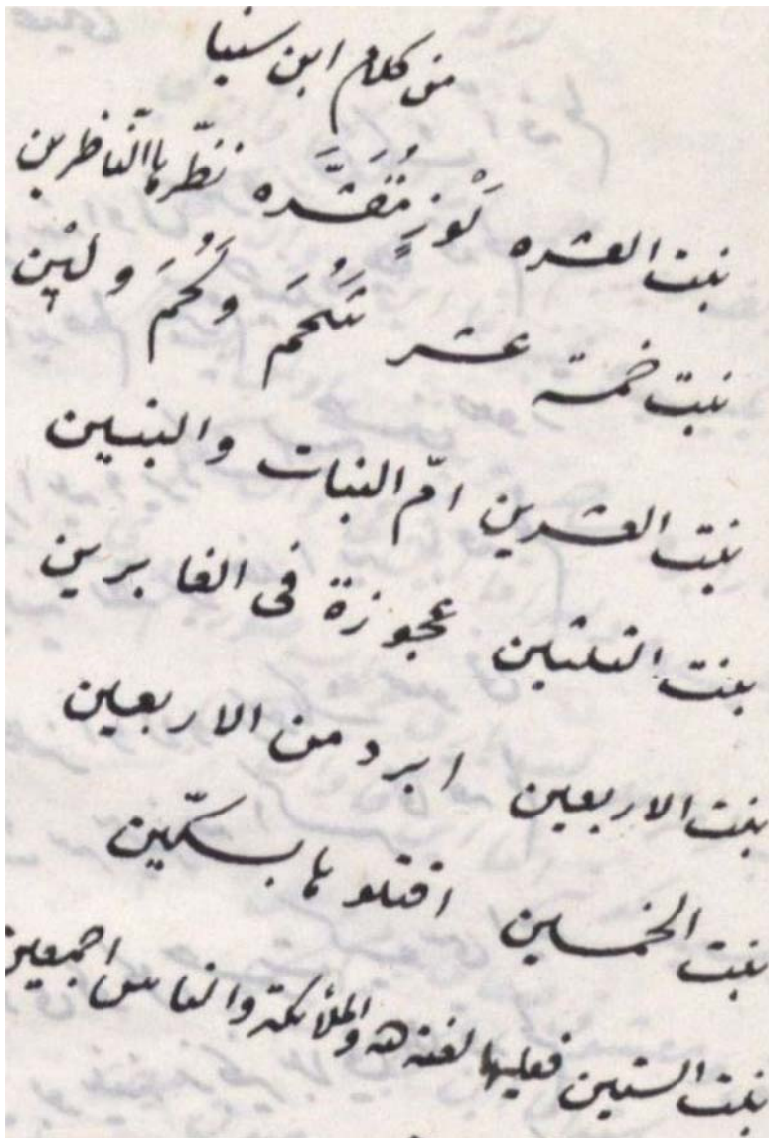 من كلام ابن سينا
بنت العشره لَوْزٍ مُقَشَّره تنظّرها النّاظرين
بنت خمسة عشر شَحُمَ ولَحُمَ ولين
بنت العشرين امّ البنات والبنين
بنت الثلثين عجوزة فى الغابرين
بنت الاربعين ابرد من الاربعين
بنت الخمسين اقتلوها بسكّين
بنت الستين فعليها لعنة الله والملائكة والناس اجمعين